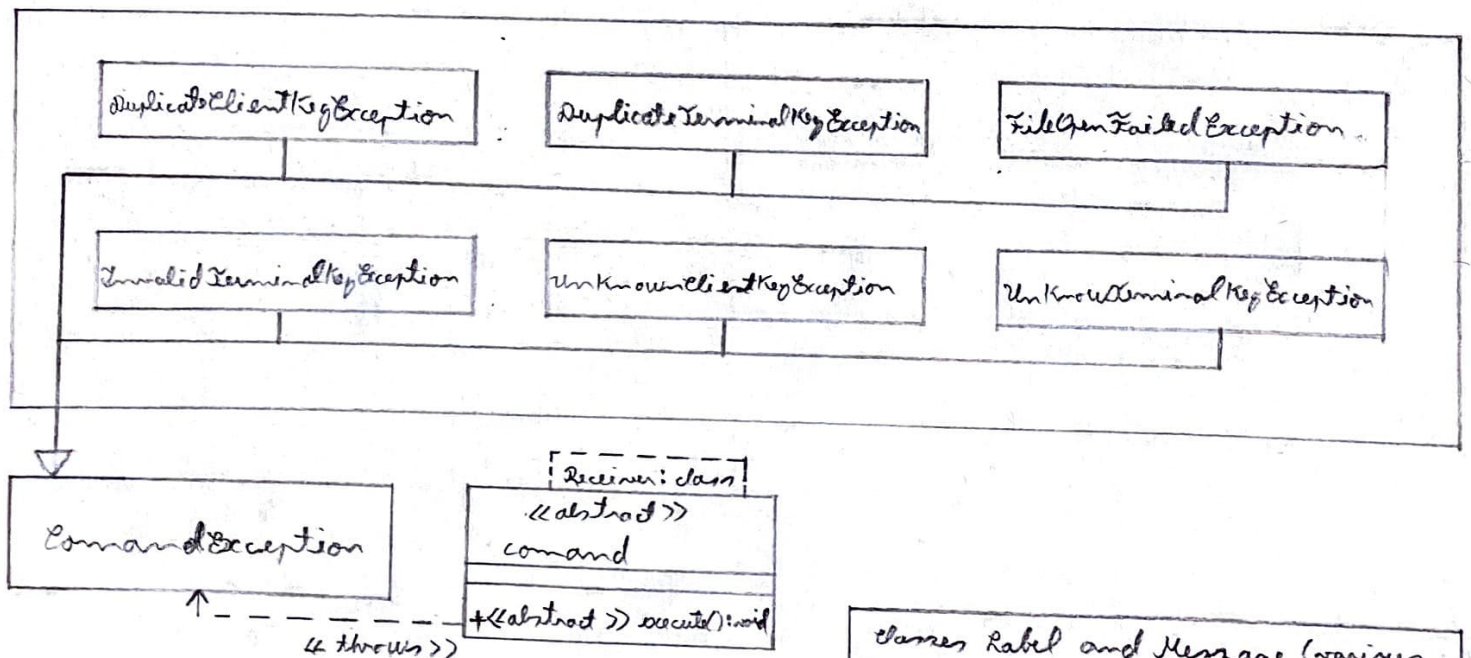 DuplicateClientKeyException
DuplicateTerminalKeyException
FileOpenFailedException
InvalidTerminalKeyException
UnKnownClientKeyException
UnKnowTerminalKeyException
Receiver: class
<<abstract>>
comand
ComandException
+<<abstract>> execute():void
<<throws>>
Classes Label and Message (various